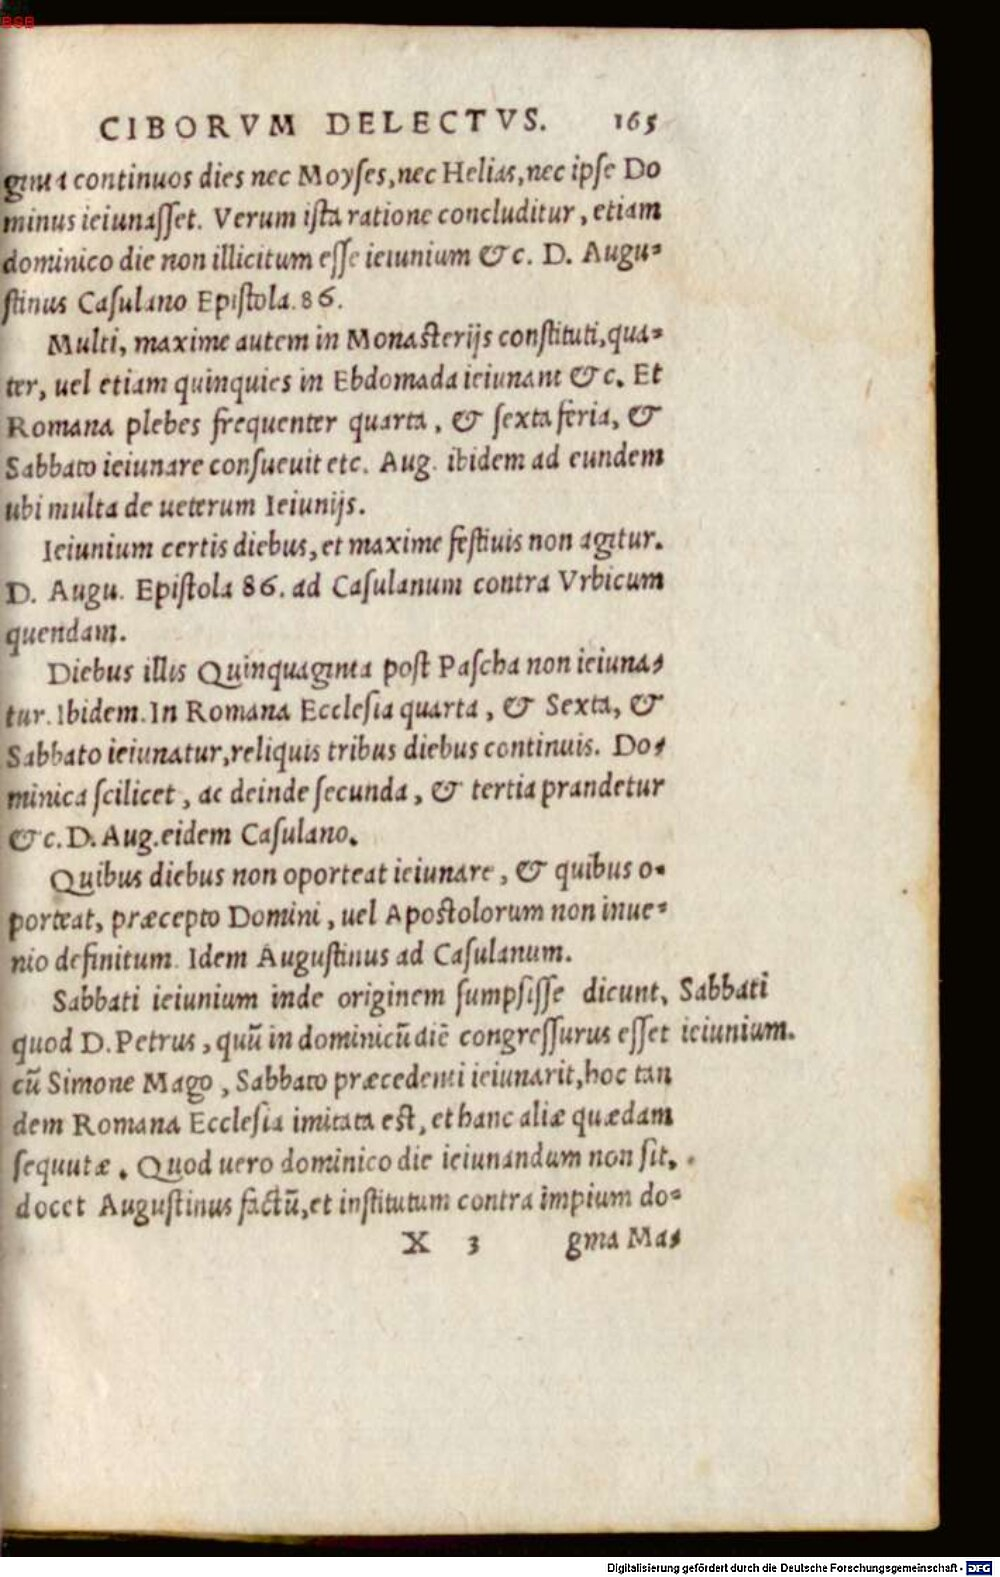 BSB
CIBORVM DELECTVS. 165
ginta continuos dies nec Moyſes, nec Helias, nec ipſe Do
minus ieiunaſſet. Verum iſta ratione concluditur, etiam
dominico die non illicitum eſſe ieiunium &c. D. Augu-
ſtinus Caſulano Epiſtola. 86.
Multi, maxime autem in Monaſterijs conſtituti, qua-
ter, uel etiam quinquies in Ebdomada ieiunant &c. Et
Romana plebes frequenter quarta, & ſexta feria, &
Sabbato ieiunare conſueuit etc. Aug. ibidem ad eundem
ubi multa de ueterum Ieiunijs.
Ieiunium certis diebus, et maxime feſtiuis non agitur.
D. Augu. Epiſtola 86. ad Caſulanum contra Vrbicum
quendam.
Diebus illis Quinquaginta poſt Paſcha non ieiuna-
tur. Ibidem. In Romana Eccleſia quarta, & Sexta, &
Sabbato ieiunatur, reliquis tribus diebus continuis. Do-
minica ſcilicet, ac deinde ſecunda, & tertia prandetur
&c. D. Aug. eidem Caſulano.
Quibus diebus non oporteat ieiunare, & quibus o-
porteat, præcepto Domini, uel Apoſtolorum non inue-
nio definitum. Idem Auguſtinus ad Caſulanum.
Sabbati ieiunium inde originem ſumpſiſſe dicunt, Sabbati
quod D. Petrus, quũ in dominicũ diẽ congreſſurus eſſet ieiunium.
cũ Simone Mago, Sabbato præcedenti ieiunarit, hoc tan
dem Romana Eccleſia imitata eſt, et hanc aliæ quædam
ſequutæ. Quod uero dominico die ieiunandum non ſit,
docet Auguſtinus factũ, et inſtitutum contra impium do-
X 3 gma Ma-
Digitalisierung gefördert durch die Deutsche Forschungsgemeinschaft - DFG